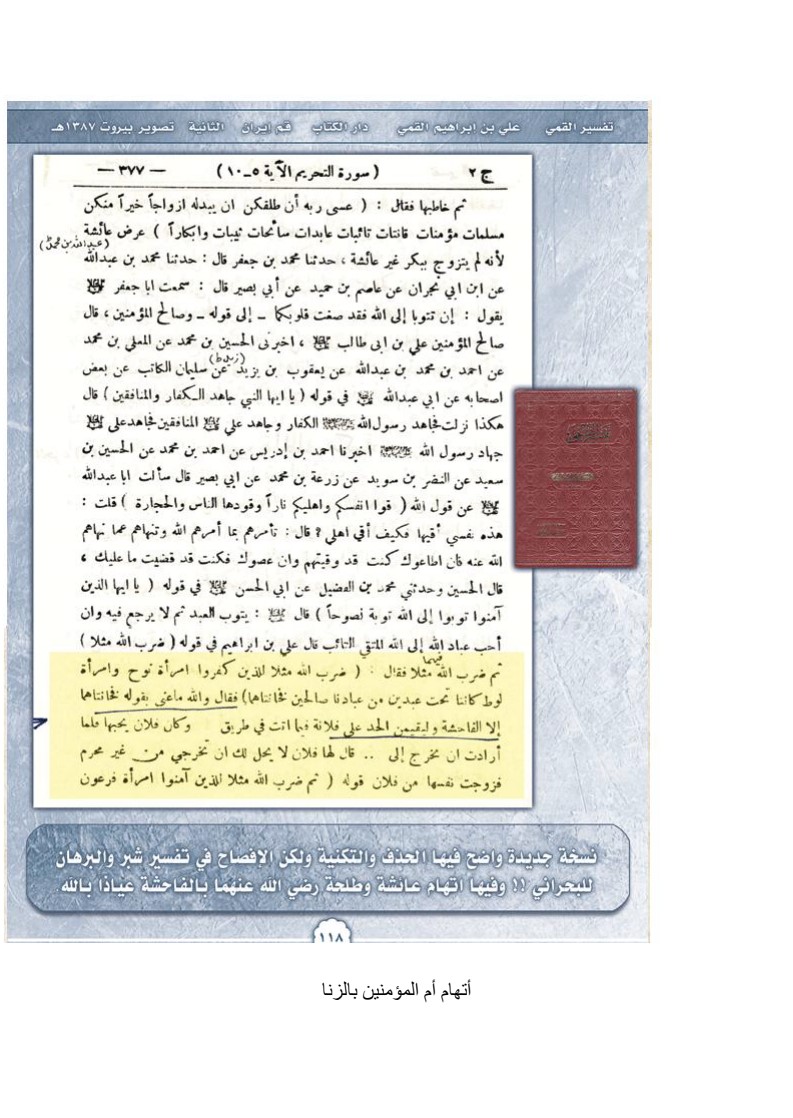 تفسير القمي علي بن ابراهيم القمي دار الكتاب قم ايران الثانية تصوير بيروت ١٣٨٧هـ
ج ٢ ( سورة التحريم الآية ٥ـ١٠ ) — ٣٧٧ —
ثم خاطبها فقال : ( عسى ربه أن طلقكن ان يبدله ازواجاً خيراً منكن
مسلمات مؤمنات قانتات تائبات عابدات سائحات ثيبات وابكاراً ) عرض عائشة
(عبدالله بن محمد ط)
لأنه لم يتزوج ببكر غير عائشة ، حدثنا محمد بن جعفر قال : حدثنا محمد بن عبدالله
عن ابن ابي نجران عن عاصم بن حميد عن أبي بصير قال : سمعت ابا جعفر عليه السلام
يقول : إن تتوبا إلى الله فقد صغت قلوبكما ـ إلى قوله ـ وصالح المؤمنين ، قال
صالح المؤمنين علي بن ابى طالب عليه السلام ، اخبرنى الحسين بن محمد عن المعلى بن محمد
(زيد ط)
عن احمد بن محمد بن عبدالله عن يعقوب بن يزيد عن سليمان الكاتب عن بعض
اصحابه عن ابي عبدالله عليه السلام في قوله ( يا ايها النبي جاهد الكفار والمنافقين ) قال
هكذا نزلت فجاهد رسول الله الكفار وجاهد علي عليه السلام المنافقين فجاهد علي عليه السلام
جهاد رسول الله اخبرنا احمد بن إدريس عن احمد بن محمد عن الحسين بن
سعيد عن النضر بن سويد عن زرعة بن محمد عن ابي بصير قال سألت ابا عبدالله
عليه السلام عن قول الله ( قوا انفسكم واهليكم ناراً وقودها الناس والحجارة ) قلت :
هذه نفسي أقيها فكيف أقي اهلي ؟ قال : تأمرهم بما أمرهم الله وتنهاهم عما نهاهم
الله عنه فان اطاعوك كنت قد وقيتهم وان عصوك فكنت قد قضيت ما عليك ،
قال الحسين وحدثني محمد بن الفضيل عن ابي الحسن عليه السلام في قوله ( يا ايها الذين
آمنوا توبوا إلى الله توبة نصوحاً ) قال عليه السلام : يتوب العبد ثم لا يرجع فيه وان
أحب عباد الله إلى الله المتقي التائب قال علي بن ابراهيم في قوله ( ضرب الله مثلا )
فيهما
ثم ضرب الله مثلا فقال : ( ضرب الله مثلا للذين كفروا امرأة نوح وامرأة
لوط كانتا تحت عبدين من عبادنا صالحين فخانتاهما) فقال والله ماعنى بقوله فخانتاهما
إلا الفاحشة وليقيمن الحد على فلانة فيما اتت في طريق وكان فلان يحبها فلما
أرادت ان تخرج إلى .. قال لها فلان لا يحل لك ان تخرجي من غير محرم
فزوجت نفسها من فلان قوله ( ثم ضرب الله مثلا للذين آمنوا امرأة فرعون
نسخة جديدة واضح فيها الحذف والتكنية ولكن الافصاح في تفسير شبر والبرهان
للبحراني !! وفيها اتهام عائشة وطلحة رضي الله عنهما بالفاحشة عياذا بالله
١١٨
أتهام أم المؤمنين بالزنا